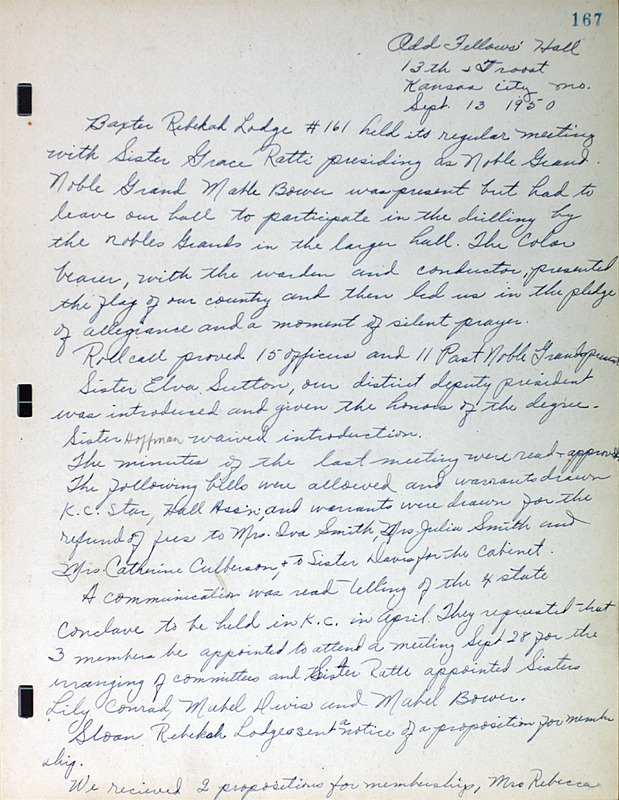 167
Odd Fellows' Hall
13th & Troost
Kansas City Mo.
Sept. 13 1950
Baxter Rebekah Lodge #161 held its regular meeting
with Sister Grace Ratti presiding as Noble Grand.
Noble Grand Mable Bower was present but had to
leave our hall to participate in the drilling by
the Nobles Grands in the larger hall. The Color
bearer, with the warden and conductor, presented
the flag of our country and then led us in the pledge
of allegiance and a moment of silent prayer.
Roll call proved 15 officers and 11 Past Noble Grands present
Sister Elva Sutton, our district deputy president
was introduced and given the honors of the degree.
Sister Hoffman waived introduction.
The minutes of the last meeting were read & approved.
The following bills were allowed and warrants drawn
K.C. Star, Hall Ass'n; and warrants were drawn for the
refund of fees to Mrs. Iva Smith, Mrs Julia Smith and
Mrs. Catherine Culberson, & to Sister Davis for the cabinet.
A communication was read telling of the 4 state
Conclave to be held in K.C. in April. They requested that
3 members be appointed to attend a meeting Sept 28 for the
erranging of committees and Sister Ratti appointed Sisters
Lily Conrad, Mabel Divis and Mabel Bower.
Sloan Rebekah Lodge sent a notice of a proposition for member
ship.
We recieved 2 propositions for memberships, Mrs Rebecca